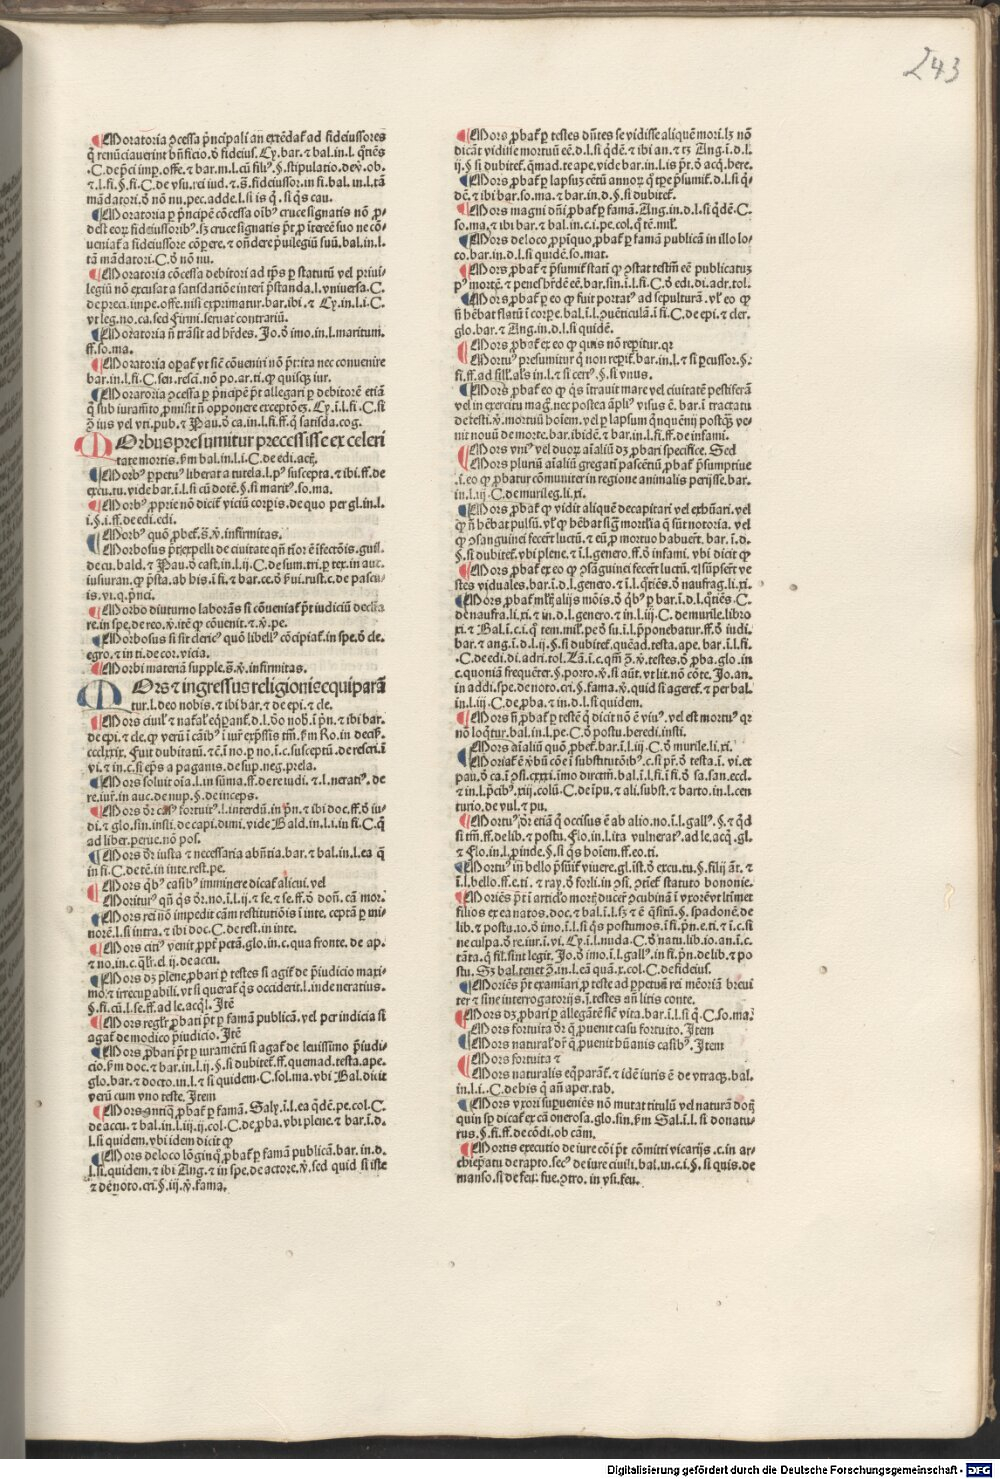 243
¶Moratoria ꝯcessa p̃ncipali an extẽdat᷑ ad fideiussores
q̃ renũciauerint bñficio.ð fideius. Cy. bar. ⁊ bal. in.l. q̃tiẽs
.C. de p̃ci imp. offe. ⁊ bar. in.l. cũ fili⁹.§. stipulatio. de ꝟ. ob.
⁊.l. fi.§. fi. C. de vsu. rei iud. ⁊.s̃. fideiussor. in fi. bal. in.l. tã
mãdatori. ð nõ nu. pec. adde.l. si is q̃. si q̃s cau.
¶Moratoria ꝑ p̃ncipẽ cõcessa oĩb⁹ crucesignatis nõ ꝓ-
dest eoꝝ fideiussorib⁹. sꝫ crucesignatis p̃t ꝓ iterẽ suo ne cõ-
ueniat᷑ a fideiussore cõpere. ⁊ oñdere p̃uilegiũ suũ. bal. in.l.
tã mãdatori. C. ð nõ nu.
¶Moratoria cõcessa debitori ad tp̃s ꝑ statutũ vel priui-
legiũ nõ excusat a satisdatiõe interĩ p̃standa.l. vniuersa. C.
de preci. impe. offe. nisi exprimatur. bar. ibi. ⁊ Cy. in.l.i. C.
vt leg. no. ca. sed Firmi. seruat contrariũ.
¶Moratoria ñ trãsit ad hr̃des. Jo. ð imo. in.l. maritum.
ff. so. ma.
¶Moratoria oꝑat᷑ vt siẽ cõueniri nõ p̃t: ita nec conuenire
bar. in.l. fi. C. sen. resci. nõ po. ar. ti. ꝙ quisqꝫ iur.
¶Moraroria ꝯcessa ꝑ p̃ncipẽ p̃t allegari ꝑ debitorẽ etiã
q̃ sub iuram̃to ꝓmisit ñ opponere exceptõeꝫ. Cy. ĩ.l. fi. C. si
ꝯ̃ ius vel vti. pub. ⁊ Pau. ð ca. in.l. fi. ff. q̃ satisda. cog.
MOrbus presumitur precessisse ex celeri
tate mortis. s̃m bal. in.l.i. C. de edi. act̃.
¶Morb⁹ ꝑpetu⁹ liberat a tutela.l. p⁹ suscepta. ⁊ ibi. ff. de
excu. tu. vide bar. ĩ.l. si cũ dotẽ.§. si marit⁹. so. ma.
¶Morb⁹ ꝓprie nõ dicit᷑ viciũ corꝑis. de quo per gl. in.l.
i.§. i. ff. de edi. edi.
¶Morb⁹ quo ꝓbet᷑.s̃.ꝟ. infirmitas.
¶Morbosus p̃t expelli de ciuitate qñ tĩor ẽ ĩfectõis. guil.
de cu. bald. ⁊ Pau. ð cast. in.l. ij. C. de sum. tri. ꝑ tex. in auc.
iusiuran. ꝙ p̃sta. ab his. ĩ fi. ⁊ bar. cc. ð s̃ui. rust. c. de pascu-
is. vi. q. p̃nci.
¶Morbo diuturno laborãs si cõueniat᷑ p̃t iudiciũ decli̴a
re. in spe. de reo.ꝟ. itẽ ꝙ cõuenit. ⁊.ꝟ. pe.
¶Morbosus si sit cleric⁹ quõ libell⁹ cõcipiat᷑. in spe. ð cle.
egro. ⁊ in ti. de cor. vicia.
¶Morbi materiã supple.s̃.ꝟ. infirmitas.
MOrs ⁊ ingressus religionis equiparã
tur.l. deo nobis. ⁊ ibi bar. ⁊ de epi. ⁊ cle.
¶Mors ciuil᷑ ⁊ nat᷑al᷑ eq̃parant᷑. d.l. ðo nob̃. ĩ p̃n. ⁊ ibi bar.
de epi. ⁊ cle. ꝙ verũ ĩ cãib⁹ ĩ iur̃ exp̃ssis tm̃. s̃m Ro. in decis̃.
ccclxxix. Fuit dubitatũ. ⁊ c̃. ĩ no. ꝑ no. ĩ.c. susceptũ. de rescri. ĩ
vi. ⁊ in.c. si ep̃s a paganis. de sup. neg. prela.
¶Mors soluit oĩa.l. in sũma. ff. de re iudi. ⁊.l. nerati⁹. de
re. iur̃. in auc. de nup.§. deinceps.
¶Mors dr̃ cas⁹ fortuit⁹.l. interdũ. in p̃n. ⁊ ibi doc. ff. ð iu-
di. ⁊ glo. fin. insti. de capi. dimi. vide Bald. in.l.i. in fi. C. q̃
ad liber. perue. nõ pos.
¶Mors dr̃ iusta ⁊ necessaria abñtia. bar. ⁊ bal. in.l. ea q̃
in fi. C. de tẽ. in inte. rest. pe.
¶Mors q̃b⁹ casib⁹ imminere dicat᷑ alicui. vel
¶Moritur⁹ qñ q̃s dr̃. no. ĩ.l. ij. ⁊ se. ⁊ se. ff. ð doñ. cã mor.
¶Mors rei nõ impedit cãm restitutiõis ĩ inte. ceptã ꝑ mi-
norẽ.l. si intra. ⁊ ibi doc. C. de rest. in inte.
¶Mors citi⁹ venit ꝓpt̃ pctã. glo. in.c. qua fronte. de ap.
⁊ no. in.c. q̃lr̃. el ij. de accu.
¶Mors dꝫ plene ꝓbari ꝑ testes si agit᷑ de p̃iudicio maxi-
mo ⁊ irrecuꝑabili. vt si querat᷑ q̃s occiderit.l. inde neratius.
§. fi. cũ.l. se. ff. ad le. acq̃l. Itẽ
¶Mors regl̃r ꝓbari p̃t ꝑ famã publicã. vel per indicia si
agat᷑ de modico p̃iudicio. Itẽ
¶Mors ꝓbari p̃t ꝑ iuramẽtũ si agat᷑ de leuissimo p̃iudi-
cio. s̃m doc. ⁊ bar. in.l. ij.§. si dubitet᷑. ff. quemad. testa. ape.
glo. bar. ⁊ docto. in.l. ⁊ si quidem. C. sol. ma. vbi Bal. dicit
verũ cum vno teste. Item
¶Mors antiq̃ ꝓbat᷑ ꝑ famã. Saly. ĩ.l. ea q̃dẽ. pe. col. C.
de accu. ⁊ bal. in.l. iij. ij. col. C. de ꝓba. vbi plene. ⁊ bar. ĩ. d.
l. si quidem. vbi idem dicit ꝙ
¶Mors de loco lõginq̃ ꝓbat᷑ ꝑ famã publicã. bar. in. d.
l. si. quidem. ⁊ ibi Ang. ⁊ in spe. de actore.ꝟ. sed quid si iste
⁊ de noto. cri.§. iij.ꝟ. fama.
¶Mors ꝓbat᷑ ꝑ testes dñtes se vidisse aliquẽ mori. lꝫ nõ
dicãt vidisse mortuũ eẽ. d.l. si q̃dẽ. ⁊ ibi an. ⁊ tꝫ Ang. ĩ. d.l.
ij.§. si dubitet᷑. q̃mad. te ape. vide bar. in.l. is p̃t. ð acq. here.
¶Mors ꝓbat᷑ ꝑ lapsuꝫ cẽtũ annoꝝ q̃ tꝑe p̃sumit᷑. d.l. si q̃-
dẽ. ⁊ ibi bar. so. ma. ⁊ bar. in. d.§. si dubitet᷑.
¶Mors magni dñi ꝓbat᷑ ꝑ famã. Ang. in. d.l. si q̃dẽ. C.
so. ma. ⁊ ibi bar. ⁊ bal. in.c.i. pe. col. q̃ tẽ. mil᷑.
¶Mors de loco ꝓpĩquo ꝓbat᷑ ꝑ famã publicã in illo lo-
co. bar. in. d.l. si quidẽ. so. mat.
¶Mors ꝓbat᷑ ⁊ p̃sumit᷑ stati̴ ꝙ ꝯstat testm̃ eẽ publicatuꝫ
p⁹ mortẽ. ⁊ penes hr̃dẽ eẽ. bar. fin. ĩ.l. fi. C. ð edi. di. adr. tol.
¶Mors ꝓbat᷑ ꝑ eo ꝙ fuit portat⁹ ad sepulturã. vl᷑ eo ꝙ
ñ hẽbat flatũ ĩ corꝑe. bal. ĩ.l. ꝯuẽticulã. ĩ fi. C. de epi. ⁊ cler.
glo. bar. ⁊ Ang. in. d.l. si quidẽ.
¶Mors ꝓbat᷑ ex eo ꝙ quis nõ reꝑitur. qr
¶Mortu⁹ presumitur q̃ non reꝑit᷑. bar. in.l. ⁊ si ꝑcussor.§.
fi. ff. ad sill᷑. al̃s in.l. ⁊ si cert⁹.§. si vnus.
¶Mors ꝓbat᷑ eo ꝙ q̃s ĩtrauit mare vel ciuitatẽ pestiferã
vel in exercitu mag̃. nec postea ãpli⁹ visus ẽ. bar. ĩ tractatu
de testi.ꝟ. mortuũ hoĩem. vel ꝑ lapsum q̃nquẽnij postq̃ꝫ ve-
nit nouũ de morte. bar. ibidẽ. ⁊ bar. in.l. fi. ff. de infami.
¶Mors vni⁹ vel duoꝝ aĩaliũ dꝫ ꝓbari specifice. Sed
¶Mors pluriũ aĩaliũ gregati̴ pascẽtiũ ꝓbat᷑ p̃sumptiue
.i. eo ꝙ ꝓbatur cõmuniter in regione animalis perijsse. bar.
in.l. iij. C. de murileg. li. xi.
¶Mors ꝓbat᷑ ꝙ vidit aliquẽ decapitari vel exbũari. vel
ꝙ ñ hẽbat pulsũ. vl᷑ ꝙ hẽbat sig̃ mort̃lia q̃ sũt notoria. vel
ꝙ ꝯsanguinei fecer̃t luctũ. ⁊ eũ ꝓ mortuo habuer̃t. bar. ĩ. d.
§. si dubitet᷑. vbi plene. ⁊ ĩ.l. genero. ff. ð infami. vbi dicit ꝙ
¶Mors ꝓbat᷑ ex eo ꝙ ꝯsãguinei fecer̃t luctũ. ⁊ sũpser̃t ve
stes viduales. bar. ĩ. d.l. genero. ⁊ ĩ.l. q̃tiẽs. ð naufrag. li. xi.
¶Mors ꝓbat᷑ ml̃t̃ alijs mõis. ð q̃b⁹ ꝑ bar. ĩ. d.l. q̃tiẽs. C.
de naufra. li. xi. ⁊ in. d.l. genero. ⁊ in.l. iij. C. de murile. libro
xi. ⁊ Bal. ĩ.c.i. q̃ tem. mil᷑. pe ð fu. ĩ.l. p̃ponebatur. ff. ð iudi.
bar. ⁊ ang. ĩ. d.l. ij.§. si dubitet᷑. quẽad. testa. ape. bar. ĩ.l. fi.
.C. de edi. di. adri. tol. Lã. ĩ.c. qm̃ ꝯ̃.ꝟ. testes. ð ꝓba. glo. in
c. quoniã frequẽter.§. porro.ꝟ. si aũt. vt lit. nõ cõte. Jo. an.
in addi. spe. de noto. cri.§. fama.ꝟ. quid si ageret᷑. ⁊ per bal.
in.l. iij. C. de ꝓba. ⁊ in. d.l. si quidem.
¶Mors ñ ꝓbat᷑ ꝑ testẽ q̃ dicit nõ ẽ viu⁹. vel est mortu⁹ qr
nõ loq̃tur. bal. in.l. pe. C. ð postu. heredi. insti.
¶Mors aĩaliũ quõ ꝓbet᷑. bar. ĩ.l. iij. C. ð murile. li. xi.
¶Moriat᷑ ẽ ꝟbũ cõe ĩ substitutõib⁹. c. si pr̃. ð testa. ĩ. vi. et
pau. ð ca. ĩ ꝯsi. cxxxi. imo dirctm̃. bal. ĩ.l. fi. ĩ fi. ð sa. san. eccl.
⁊ in.l. p̃cib⁹. xij. colũ. C. de ĩpu. ⁊ ali. subst. ⁊ barto. in.l. cen
turio. de vul. ⁊ pu.
¶Mortu⁹ dr̃ etiã q̃ occisus ẽ ab alio. no. ĩ.l. gall⁹.§. ⁊ q̃d
si tm̃. ff. de lib. ⁊ postu. Flo. in.l. ita vulnerat⁹. ad le. acq̃. gl.
⁊ Flo. in.l. ꝓinde.§. si q̃s hoĩem. ff. eo. ti.
¶Mortu⁹ in bello p̃sũit᷑ viuere. gl. ist. ð excu. tu.§. filij ãt. ⁊
ĩ.l. bello. ff. e. ti. ⁊ ray. ð forli. in ꝯsi. ꝯtiẽt᷑ statuto bononie.
¶Moriẽs p̃t ĩ articlo mort᷑ ducer̃ ꝯcubinã ĩ vxorẽ vt ltim̃et
filios ex ea natos. doc. ⁊ bal. ĩ.l. sꝫ ⁊ ẽ q̃sitũ.§. spadonẽ. de
lib. ⁊ postu. io. ð imo. ĩ.l. si q̃s postumos. ĩ fi. p̃n. e. ti. ⁊ ĩ.c. si
ne culpa. ð re. iur. ĩ. vi. Cy. ĩ.l. nuda. C. ð natu. lib. io. an. ĩ.c.
tãta. q̃ fil. sint legit. Jo. ð imo. ĩ.l. gall⁹. in fi. p̃n. de lib. ⁊ po
stu. Sꝫ bal. tenet ꝯ̃. in.l. eã quã. x. col. C. de fideius.
¶Moriẽs p̃t examĩari ꝓ teste ad ꝑpetuã rei mẽoriã breui
ter ⁊ sine interrogatorijs. ĩ. testes añ litis conte.
¶Mors dꝫ ꝓbari ꝑ allegãtẽ siẽ vita. bar. ĩ.l. si q̃. C. so. ma.
¶Mors fortuita dr̃ q̃ ꝓuenit casu fortuito. Item
¶Mors natural᷑ dr̃ q̃ ꝓuenit hũanis casib⁹. Item
¶Mors fortuita ⁊
¶Mors naturalis eq̃parãt᷑. ⁊ idẽ iuris ẽ de vtraqꝫ. bal.
in.l.i. C. de his q̃ añ aper. tab.
¶Mors vxori suꝑueniẽs nõ mutat titulũ vel naturã dot᷑
quin sp̃ dicat᷑ ex cã onerosa. glo. sin. s̃m Sal. ĩ.l. si donatu-
rus.§. fi. ff. de cõdi. ob cãm.
¶Mortis executio de iure cõi p̃t cõmitti vicarijs. c. in ar-
chiep̃atu de rapto. sec⁹ de iure ciuili. bal. in.c.i.§. si quis. de
manso. si de feu. fue. ꝯtro. in vsi. feu.
Digitalisierung gefördert durch die Deutsche Forschungsgemeinschaft - DFG